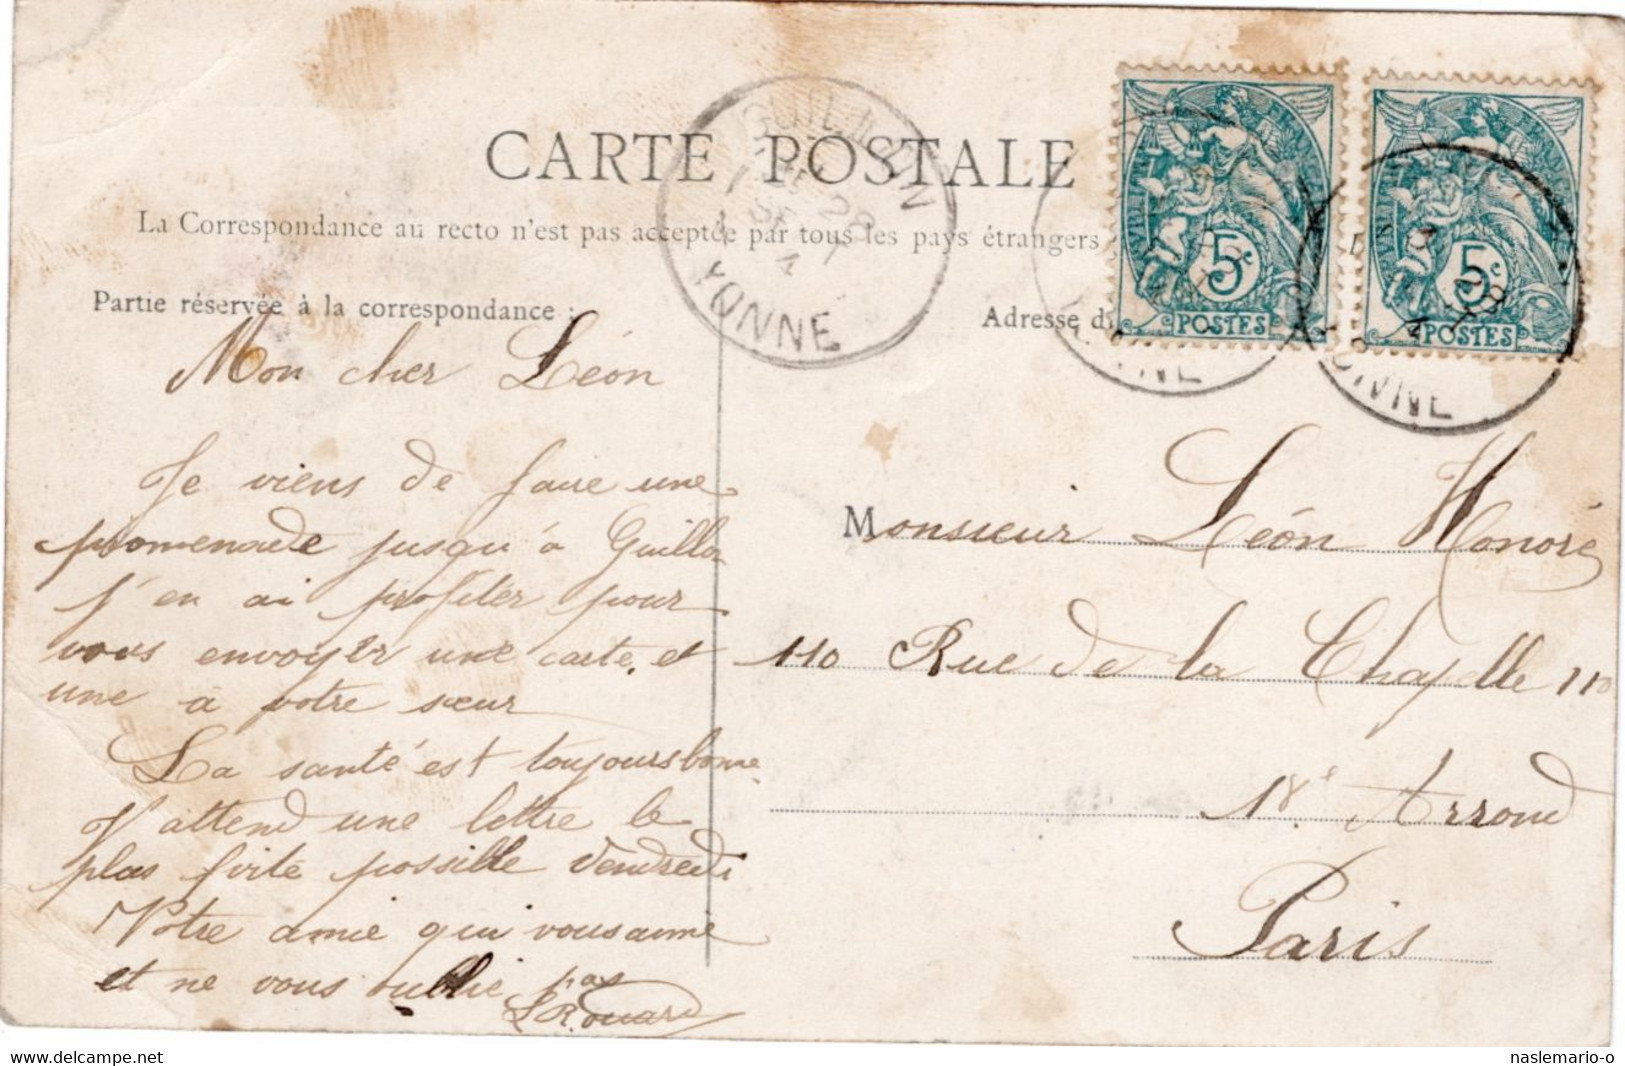 CARTE POSTALE
La Correspondance au recto n'est pas acceptée par tous les pays étrangers
Partie réservée à la correspondance :
Adresse d
GUILLON
28
YONNE
5c
POSTES
5c
POSTES
YONNE
Mon cher Léon
Je viens de faire une
promenade jusqu'à Guillon
j'en ai profiter pour
vous envoyer une carte, et
une a votre sœur
La santé est toujours bonne
J'attend une lettre le
plus vite possible Vendredi
Votre amie qui vous aime
et ne vous oublie pas
L Rouard
Monsieur Léon Honoré
110 Rue de la Chapelle 110
18e Arrond
Paris
delcampe.net
naslemario-o